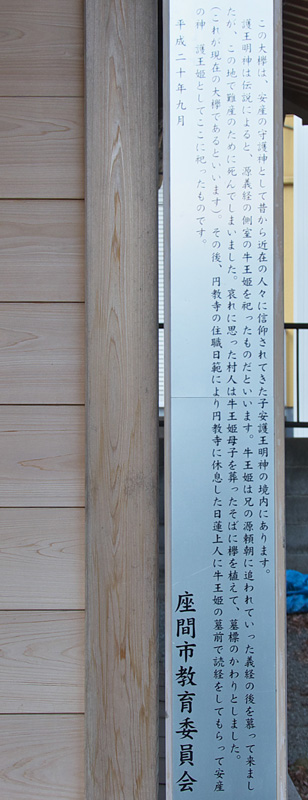 この大欅は、安産の守護神として昔から近在の人々に信仰されてきた子安護王明神の境内にあります。
護王明神は伝説によると、源義経の側室の牛王姫を祀ったものだといいます。牛王姫は兄の源頼朝に追われていった義経の後を慕って来まし
たが、この地で難産のために死んでしまいました。哀れに思った村人は牛王姫母子を葬ったそばに欅を植えて、墓標のかわりとしました。
(これが現在の大欅であるといいます)。その後、円教寺の住職日範により円教寺に休息した日蓮上人に牛王姫の墓前で読経をしてもらって安産
の神 護王姫としてここに祀ったものです。
平成二十年九月
座間市教育委員会